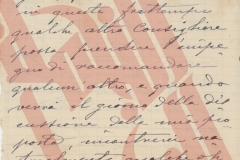 in questo frattempo
qualche altro Consigliere
possa prendere l'impe
gno di raccomandare
qualcun altro, e quando
verrà il giorno della dis
cussione della mia pro
posta, incontrerei